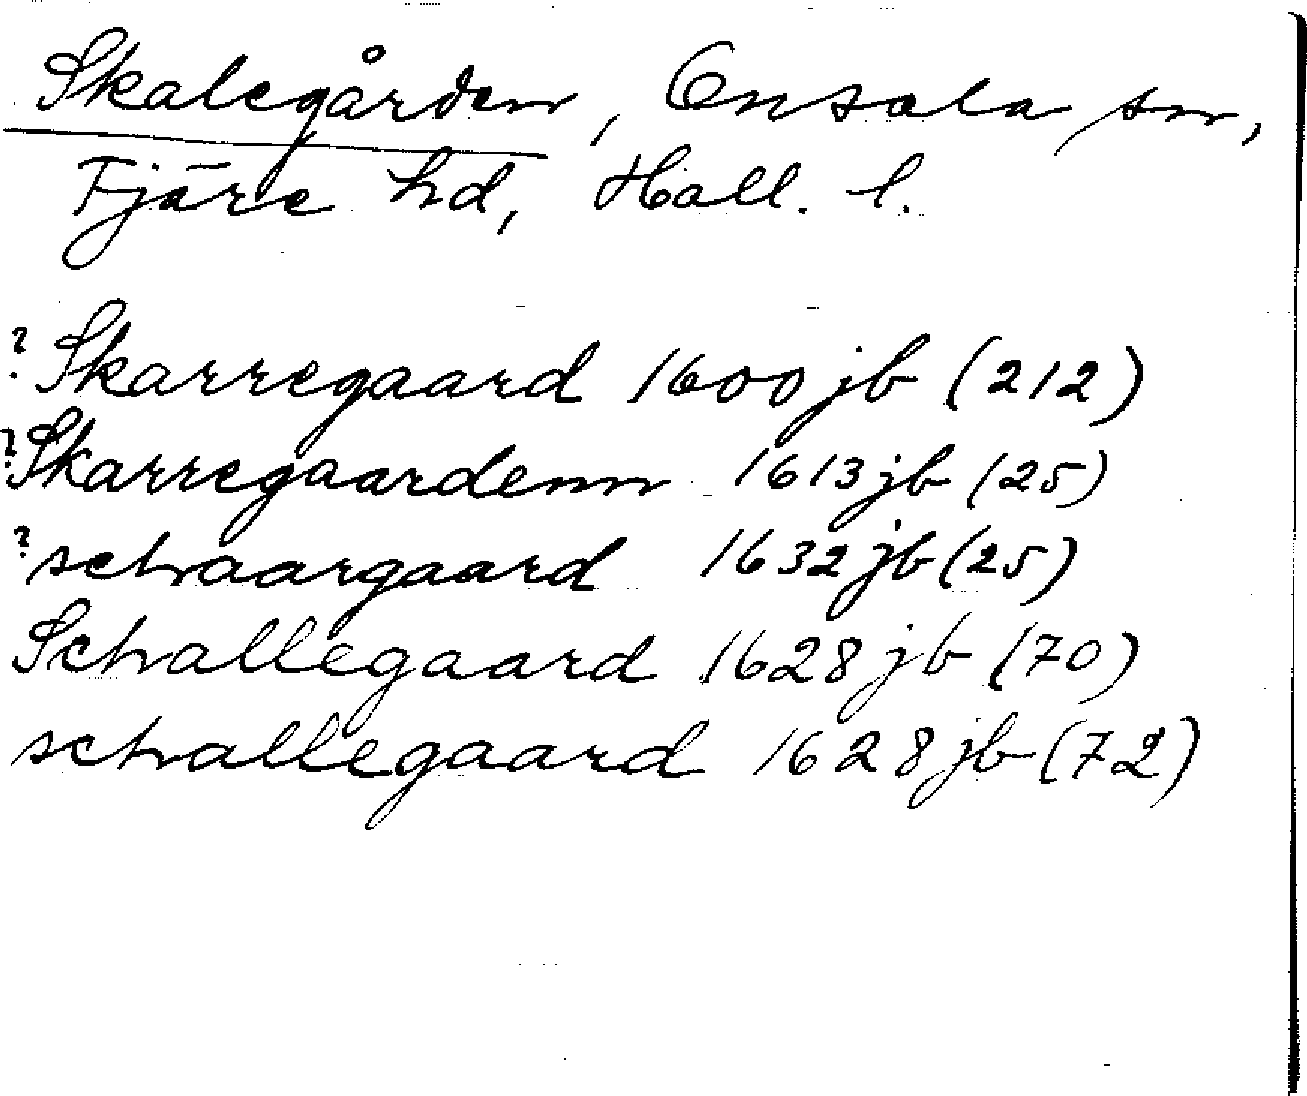 Skalegården, Onsala sn,
Fjäre hd, Hall. l.
? Skarregaard 1600 jb (212)
? Skarregaardenn 1613 jb (25)
? schaargaard 1632 jb (25)
Schallegaard 1628 jb (70)
schallegaard 1628 jb (72)